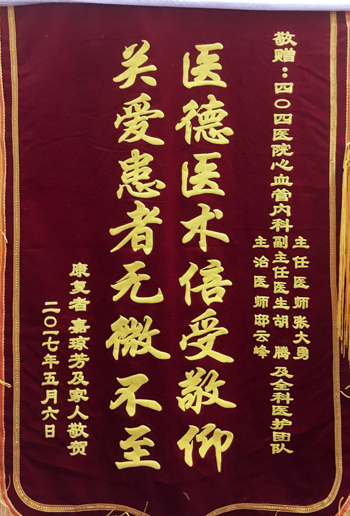 敬赠：四〇四医院心血管内科
主任医师张大勇
副主任医生胡腾及全科医护团队
主治医师邸云峰
医德医术倍受敬仰
关爱患者无微不至
康复者嘉琼芳及家人敬贺
二〇一七年五月六日